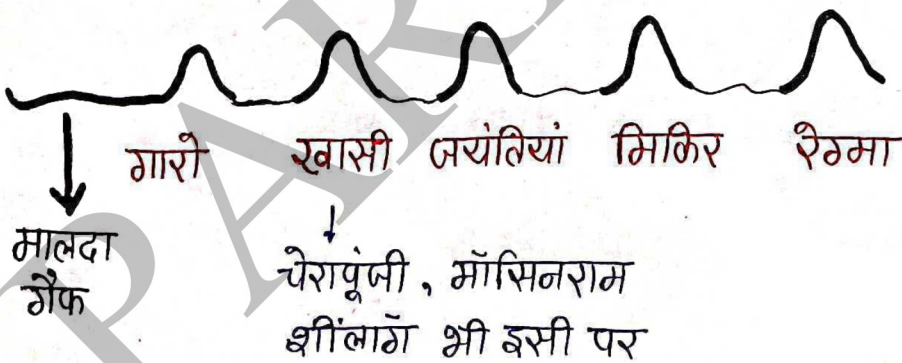 गारो खासी जयंतियां मिकिर रेग्मा
मालदा
गैफ
चेरापूंजी, मॉसिनराम
शींलाॅग भी इसी पर
PAR